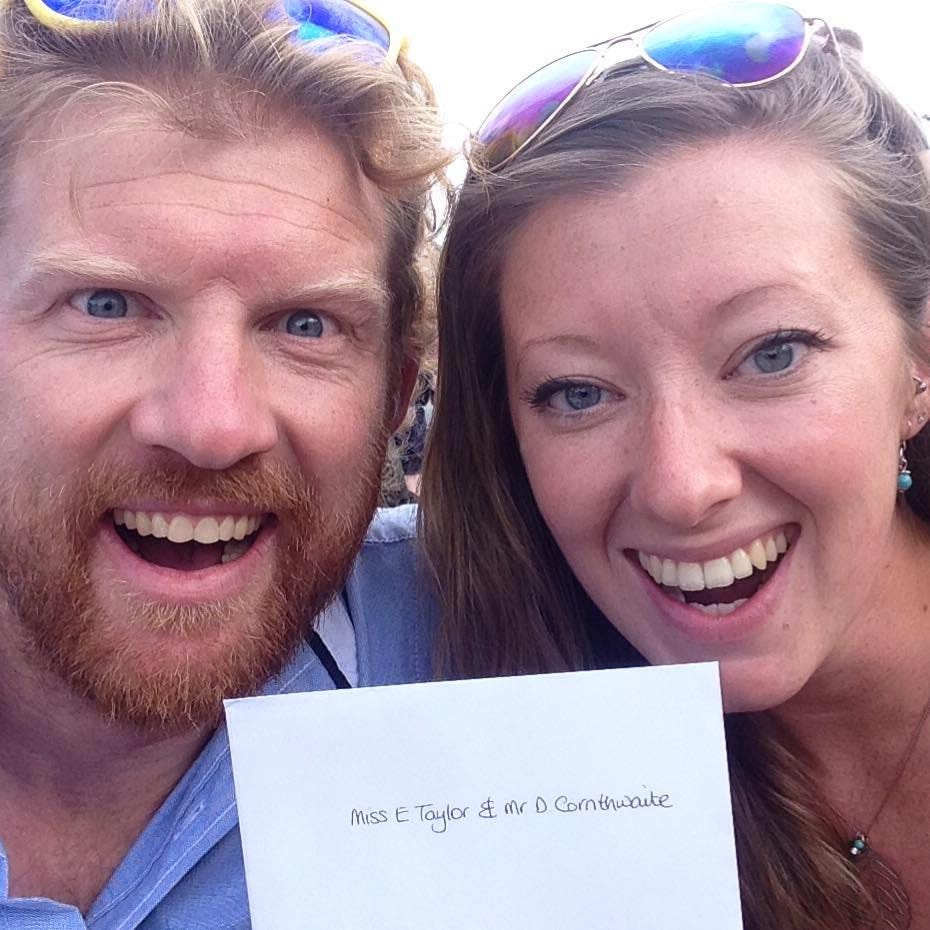 Miss E Taylor & Mr D Cornthwaite